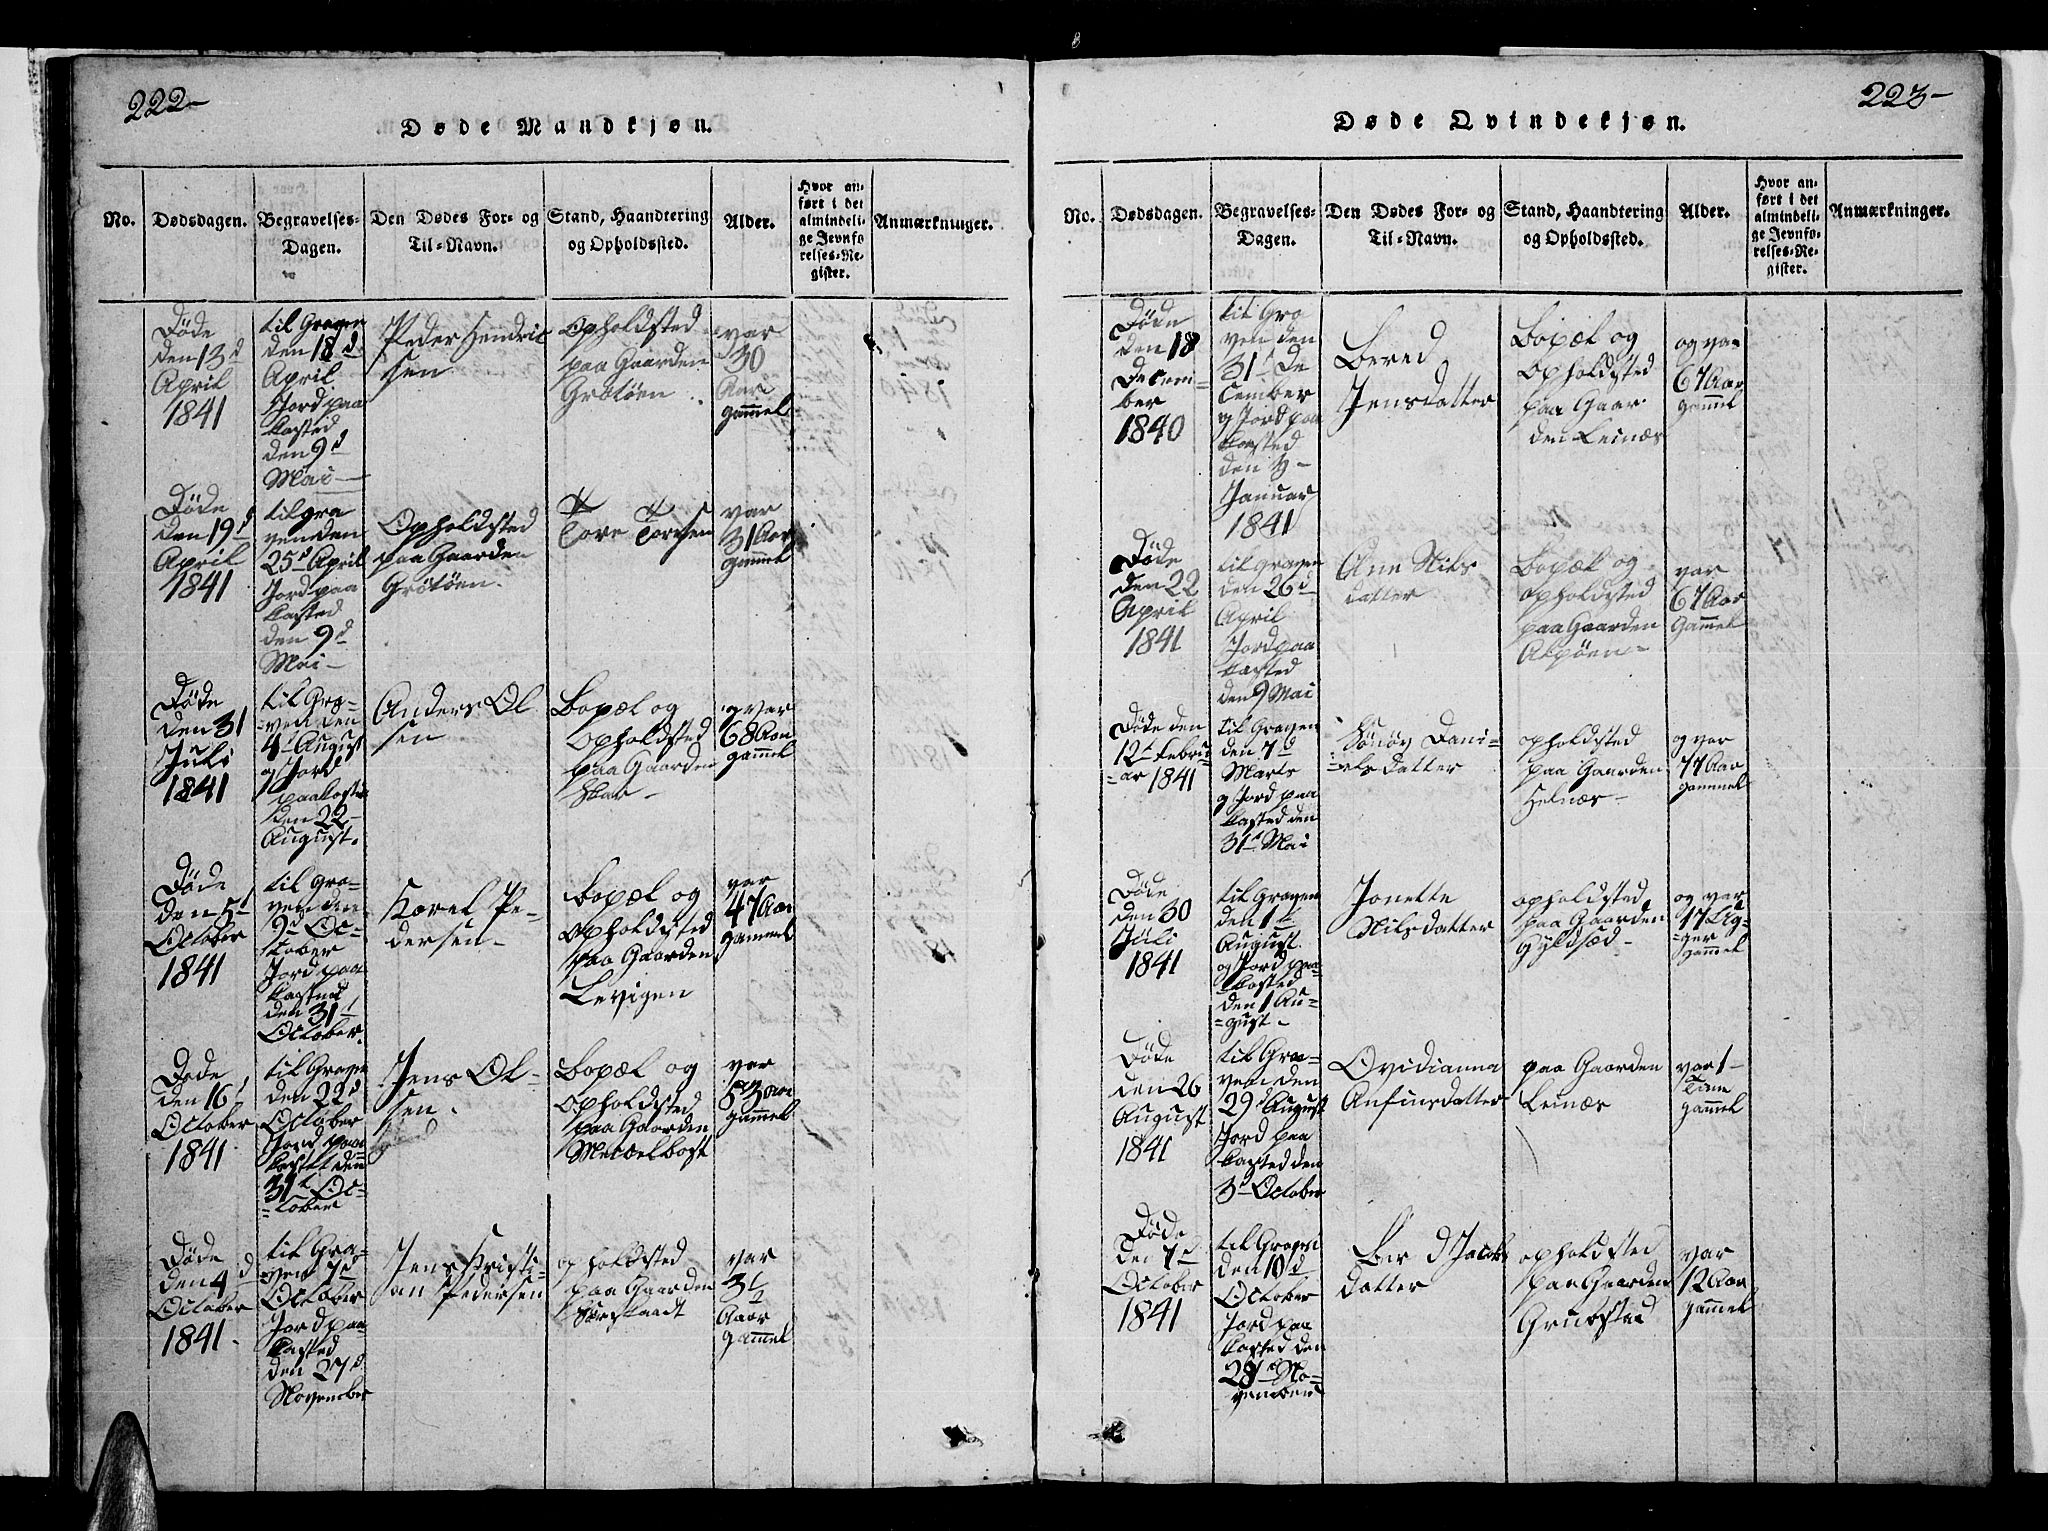 222-
Døde Mandkjøn.
No.
Dødsdagen.
Begravelses-
Dagen.
Den Dødes For- og
Til-Navn.
Stand, Haandtering
og Opholdssted.
Alder.
Hvor an-
ført i det
almindeli-
ge Jevnfø-
relses-Re-
gister.
Anmærkninger.
Døde
den 13d
April
1841
til Graven
den 18d
April
Jord paa
kasted
den 9d
Mai
Peder Hendric
sen
Opholdsted
paa Gaarden
Grøtøen
var
30
Aar
gammel
Døde
den 19d
April
1841
til gra
ven den
25d April
Jord paa
kasted
den 9d
Mai
Opholdsted
paa Gaarden
Grøtøen
Tore Toresen
var
31 Aar
gammel
Døde
den 31
Juli
1841
til Gra-
ven den
4d August
og Jord
paa kasted
den 22
August.
Anders Ol
sen
Bopæl og
opholdsted
paa Gaarden
og var
68 Aar
gammel
Døde
den 5d
October
1841
til Gra-
ven den
9d Oc-
tober
Jord paa
kasted
den 31d
October.
Karel Pe-
dersen
Bopæl og
opholdsted
paa Gaarden
Levigen
var
47 Aar
gammel
Døde
den 16d
October
1841
til Graven
den 22d
October
Jord paa
kasted den
31d Oc-
tober
Jens Ol-
sen.
Bopæl og
opholdsted
paa Gaarden
Messelbost
var
53 Aar
gammel
Døde
den 4d
October
1841
til Gra-
ven 7d
October
Jord paa
kasted
den 27d
November
Jens Kristi-
an Pedersen
opholdsted
paa Gaarden
var
3 1/2
Aar
gammel
223-
Døde Qvindekjøn.
No.
Dødsdagen.
Begravelses-
Dagen.
Den Dødes For- og
Til-Navn.
Stand, Haandtering
og Opholdssted.
Alder.
Hvor an-
ført i det
almindeli-
ge Jevnfø-
relses-Re-
gister.
Anmærkninger.
Døde
den 18
Decem-
ber
1840
til Gra
ven den
31d De
Cember
og Jord paa
kasted
den 3
Januar
1841
Bered
Jensdatter
Bopæl og
Opholdsted
paa Gaar
den Leinæs
og var
67 Aar
gammel
Døde
den 22
April
1841
til graven
den 26d
April
Jord paa
kasted
den 9 Mai
Ane Nils
datter
Bopæl og
opholdsted
paa Gaarden
Alpøen
var
67 Aar
Gammel
Døde den
12d Febru
ar 1841
til Graven
den 7d
Marts
og Jord paa
kasted den
31d Mai
Dani-
elsdatter
opholdsted
paa Gaarden
Helnæs
og var
77 Aar
gammel
Døde
den 30
Juli
1841
til Graven
den 1d
August
og Jord paa-
kasted
den 1 Au-
gust
Jonette
Nilsdatter
opholdsted
paa Gaarden
Gyldsæd
og var
17 Ug-
ger
gammel
Døde
den 26
August
1841
til Gra-
ven den
29d August
Jord paa
kasted den
3d October
Ovidianna
Anfinsdatter
paa Gaarden
Leinæs
var 1
gammel
Døde
den 7d
October
1841
til Graven
den 10d
October
Jord paa
kasted den
28d No-
vember
Ber d Jacobs
datter
opholdsted
paa Gaarden
var
12 Aar
gammel